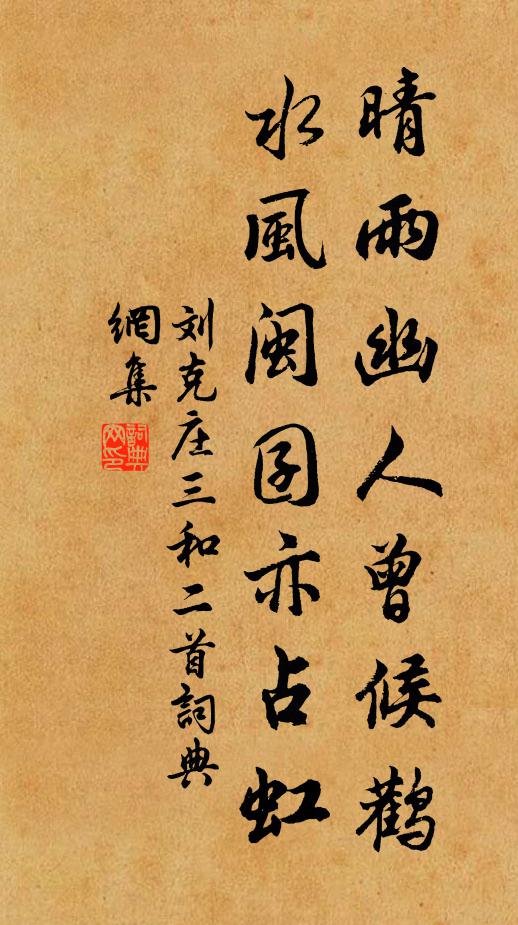 晴雨幽人曾候鸛
水風閩囝亦占虹
刘克庄三和二首詞典
網集
詞典网印